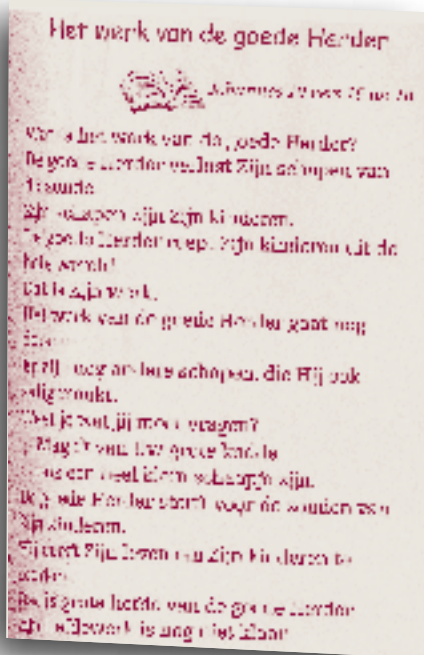 Het werk van de goede Herder
Johannes 10 vers
Wat is het werk van de goede Herder?
De goede Herder verlost Zijn schapen van
zonde.
Zijn schapen zijn Zijn kinderen.
De goede Herder roept Zijn kinderen uit de
hele wereld!
Dat is Zijn werk.
Het werk van de goede Herder gaat nog
Er zijn nog andere schapen, die Hij ook
zalig maakt.
Weet je wat jij moet vragen?
Mag ik van Uw grote kudde
een heel klein schaapje zijn.
De goede Herder sterft voor de zonden van
Zijn kinderen.
Hij geeft Zijn leven om Zijn kinderen te
De is grote liefde van de goede Herder
liefdewerk is nog niet klaar